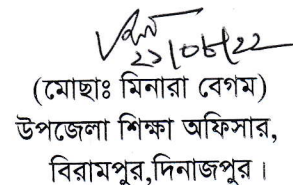 ২১/০৮/২২
(মোছাঃ মিনারা বেগম)
উপজেলা শিক্ষা অফিসার,
বিরামপুর,দিনাজপুর।